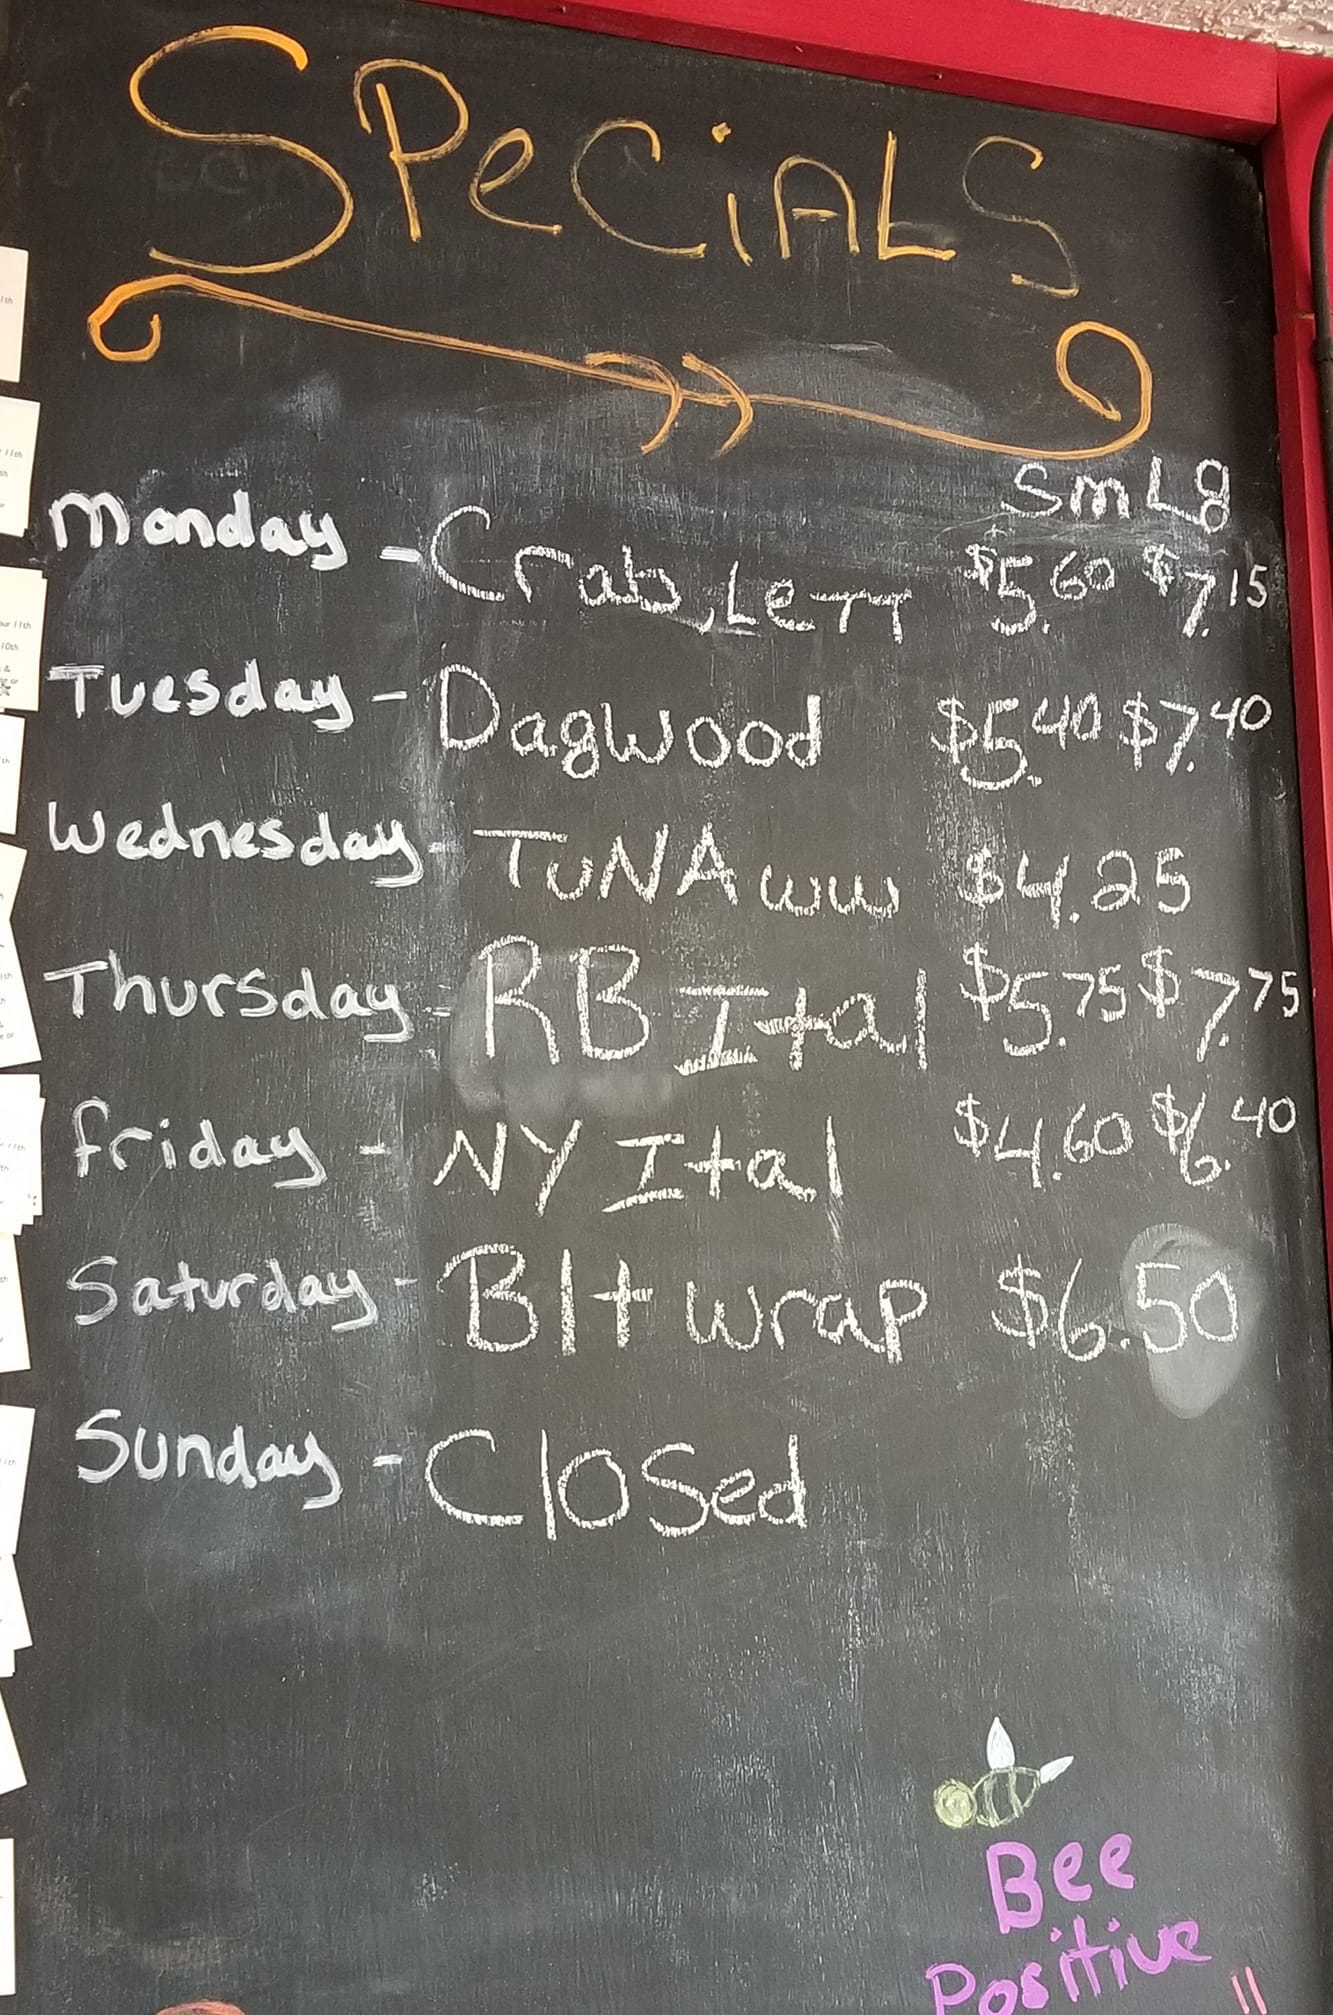 SPeCiALS
Sm Lg
Monday - Crab, LeTT $5.60 $7.15
Tuesday - Dagwood $5.40 $7.40
Wednesday - TuNA ww $4.25
Thursday - RB Ital $5.75 $7.75
friday - NY Ital $4.60 $6.40
Saturday - Blt wrap $6.50
Sunday - Closed
Bee
Positive